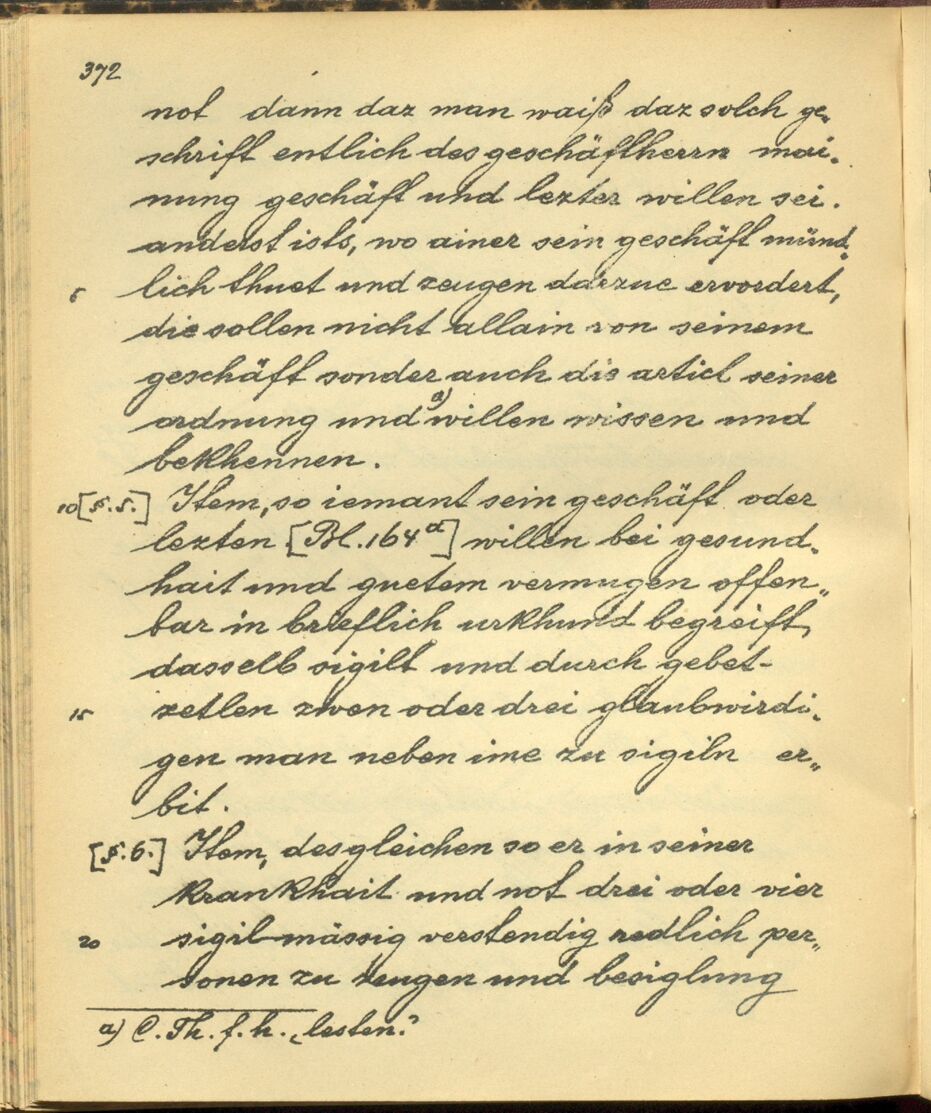 372
not dann daz man waiß daz solch ge„
schrift entlich des geschäftherrn mai„
nung geschäft und lezter willen sei.
anderst ists, wo ainer sein geschäft münd„
5 lich thuet und zeugen darzue ervordert,
die sollen nicht allain von seinem
geschäft sonder auch die articl seiner
ordnung und a) willen wissen und
bekhennen.
10 [§.5.] Item, so iemant sein geschäft oder
lezten [Bl. 164a] willen bei gesund„
hait und guetem vermugen offen„
bar in brieflich urkhund begreift,
dasselb sigilt und durch gebet-
15 zetlen zwen oder drei glaubwirdi„
gen man neben ime zu sigiln er„
bit.
[§.6.] Item, desgleichen so er in seiner
krankhait und not drei oder vier
20 sigil-mässig verstendig redlich per„
sonen zu zeugen und besiglung
a) C. Th. f. h. „lesten.“